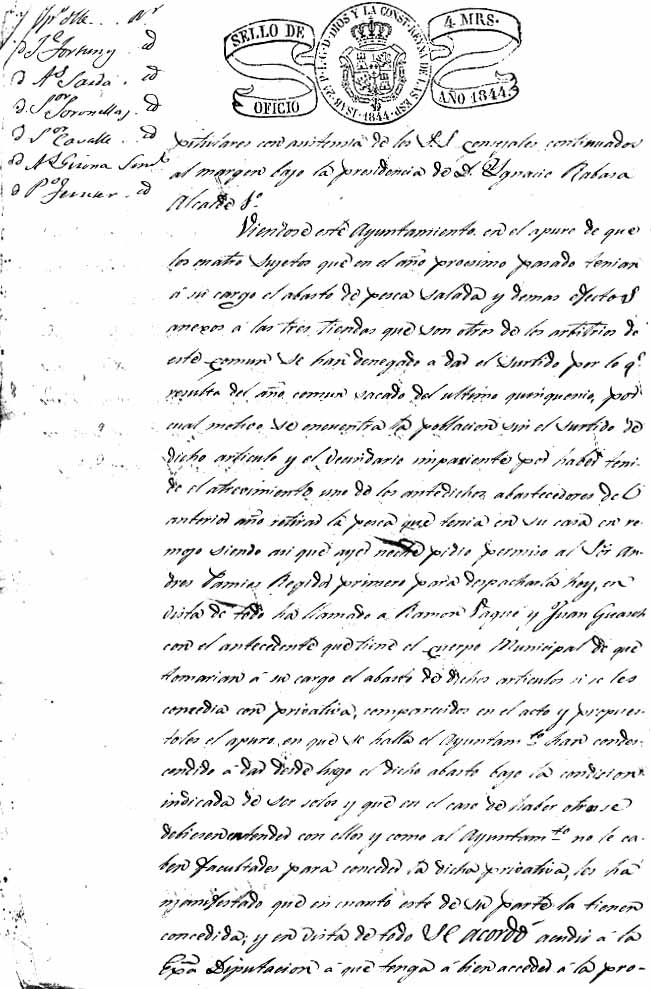 SELLO DE OFICIO
ISABEL 2ª P. L. G. D. DIOS Y LA CONST. REYNA DE LAS ESP. 1844
4 MRS. AÑO 1844.
Fortuny id
Sardá id
Soronellas id
Cavallé id
Girona Sind.
Ferrer id
pitulares con asistensia de los S.S. consejales continuados
al margen bajo la presidencia de D. Ygnacio Rabasa
Alcalde 1º
Viendose este Ayuntamiento en el apuro de que
los cuatro sujetos que en el año procsimo pasado tenian
á su cargo el abasto de pesca salada y demas efectos
anexos á las tres tiendas que son otros de los arbitrios de
este comun se han denegado a dar el surtido por lo q.
resulta del año comun sacado del ultimo quinquenio, por
cual motivo se encuentra la poblacion sin el surtido de
dicho articulo y el vecindario impasiente por haber teni-
do el atrevimiento uno de los antedichos abastecedores del
anterior año retirar la pesca que tenia en su casa en re-
mojo siendo asi que ayer noche pidio permiso al Sor. An-
dres Pamies Regidor primero para despacharla hoy, en
vista de todo ha llamado a Ramon Paqué y Juan Guasch
con el antecedente que tiene el cuerpo Municipal de que
tomarian á su cargo el abasto de dichos articulos si se les
concedia con privativa, comparecidos en el acto y propues-
toles el apuro en que se halla el Ayuntam.to han condes-
cendido á dar desde luego el dicho abasto bajo la condision
indicada de ser solos y que en el caso de haber otros se
debiesen entender con ellos y como al Ayuntam.to no le ca-
ben facultades para conceder la dicha privativa, les ha
manifestado que en cuanto este de su parte la tienen
concedida; y en vista de todo Se acordó acudir á la
Exa. Diputacion á que tenga á bien acceder á la pro-